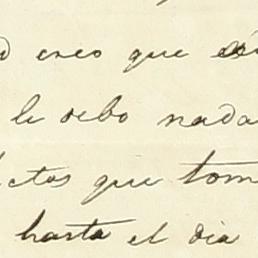 creo que
le debo nada
que tom
hasta el dia